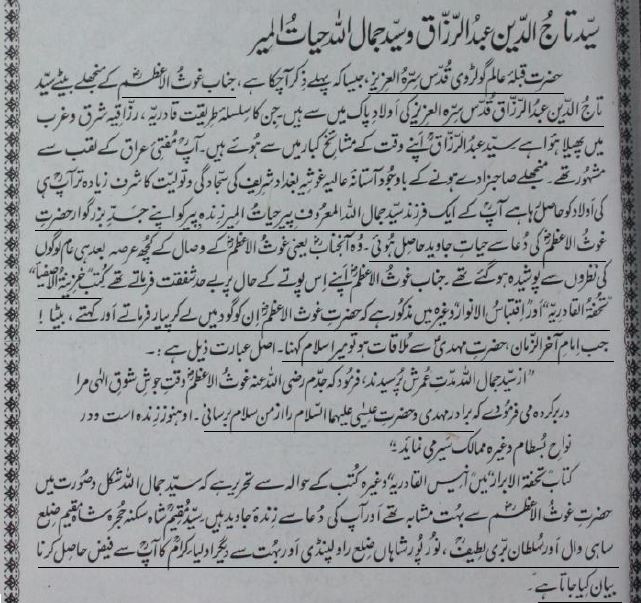 سیّد تاجُ الدّین عبدُ الرّزّاق و سیّد جمالُ اللہ حیاتُ المِیر
حضرت قبلۂ عالم گولڑوی قُدّس سِرّہُ العزیز، جیسا کہ پہلے ذکر آچکا ہے، جناب غوثُ الاعظمؓ کے منجھلے بیٹے سیّد
تاجُ الدّین عبدُ الرّزاق قُدّس سِرّہُ العزیز کی اولادِ پاک میں سے ہیں جن کا سلسلۂ طریقت قادریہ، رزّاقیہ شرق و غرب
میں پھیلا ہوا ہے سیّد عبدُ الرزّاقؒ اپنے وقت کے مشائخِ کبار میں سے ہُوئے ہیں۔ آپؒ مُفتیٔ عراق کے لقب سے
مشہُور تھے۔ منجھلے صاحبزادے ہونے کے باوجُود آستانۂ عالیہ غوثیہ بغداد شریف کی سجّادگی و تولیت کا شرف زیادہ تر آپ ہی
کی اولاد کو حاصل رہا ہے آپؒ کے ایک فرزند سیّد جمالُ اللہ المعرُوف پیر حیاتُ المیر زندہ پیر کو اپنے جدِّ بزرگوار حضرت
غوثُ الاعظمؓ کی دُعا سے حیاتِ جاوید حاصل ہُوئی۔ وُہ آنجنابؓ یعنی غوثُ الاعظمؓ کے وصال کے کُچھ عرصہ بعد ہی عام لوگوں
کی نظروں سے پوشیدہ ہو گئے تھے۔ جناب غوثُ الاعظمؓ اپنے اس پوتے کے حال پر بے حد شفقت فرماتے تھے کُتبِ "خزینۃُ الاصفیأ"
"تحفۃُ القادریہ" اور "اقتباسُ الانوار" وغیرہ میں مذکُور ہے کہ حضرت غوثُ الاعظمؓ ان کو گود میں لے کر پیار فرماتے اور کہتے، بیٹا !
جب امامِ آخر الزّمان، حضرت مہدیؑ سے مُلاقات ہو تو میرا سلام کہنا۔ اصل عبارت ذیل ہے :۔
"از سیّد جمالُ اللہ مدّتِ عُمرش پُرسیدند، فرمُود کہ جدّم رضی اللہ عنہ غوثُ الاعظمؓ وقتِ جوشِ شوقِ الٰہی مرا
در بر کردہ می فرمُودے کہ برادر مہدی و حضرت عیسیٰ علیہما السّلام را از من سلام برسانی۔ او ہنوز زندہ است و در
نواحِ بسطام وغیرہ ممالک سیر می نماید۔"
کتاب "تحفۃُ الابرار" میں "انیسُ القادریہ" وغیرہ کُتب کے حوالہ سے تحریر ہے کہ سیّد جمالُ اللہ شکل و صُورت میں
حضرت غوثُ الاعظمؓ سے بہت مشابہ تھے اور آپ کی دُعا سے زندۂ جاوید ہیں۔ سیّد مُقیم شاہ سکنہ حُجرہ شاہ مُقیم ضلع
ساہی وال اور سُلطان برّی لطیفؒ، نُور پُور شاہاں ضلع راولپنڈی اور بہت سے دیگر اولیاءِ کرامؒ کا آپؒ سے فیض حاصل کرنا
بیان کیا جاتا ہے۔